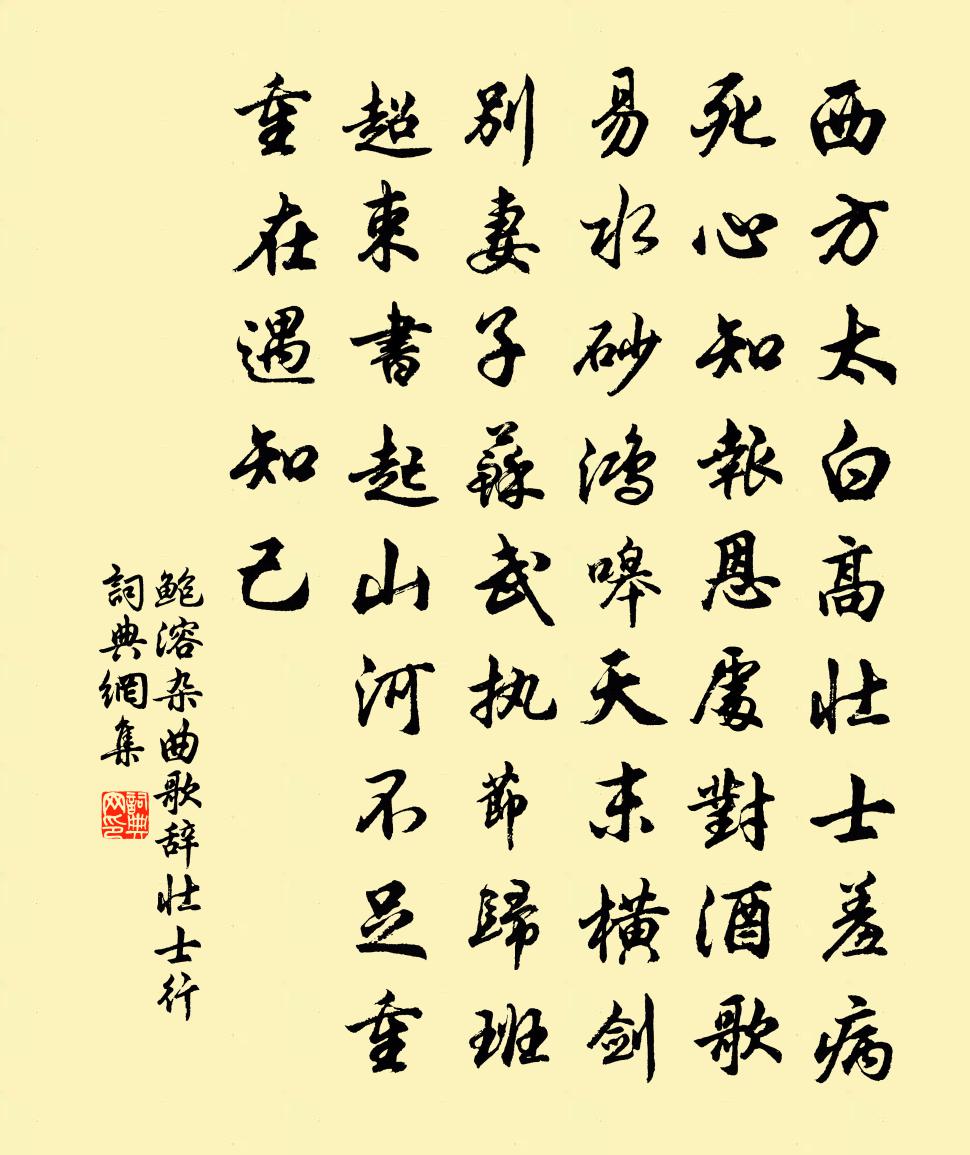 西方太白高壮士羞病
死心知報恩處對酒歌
易水砂鸿嗥天末横剑
别妻子蘇武执節歸班
超束書起山河不足重
重在遇知己
鮑溶杂曲歌辞壮士行
詞典網集
詞典